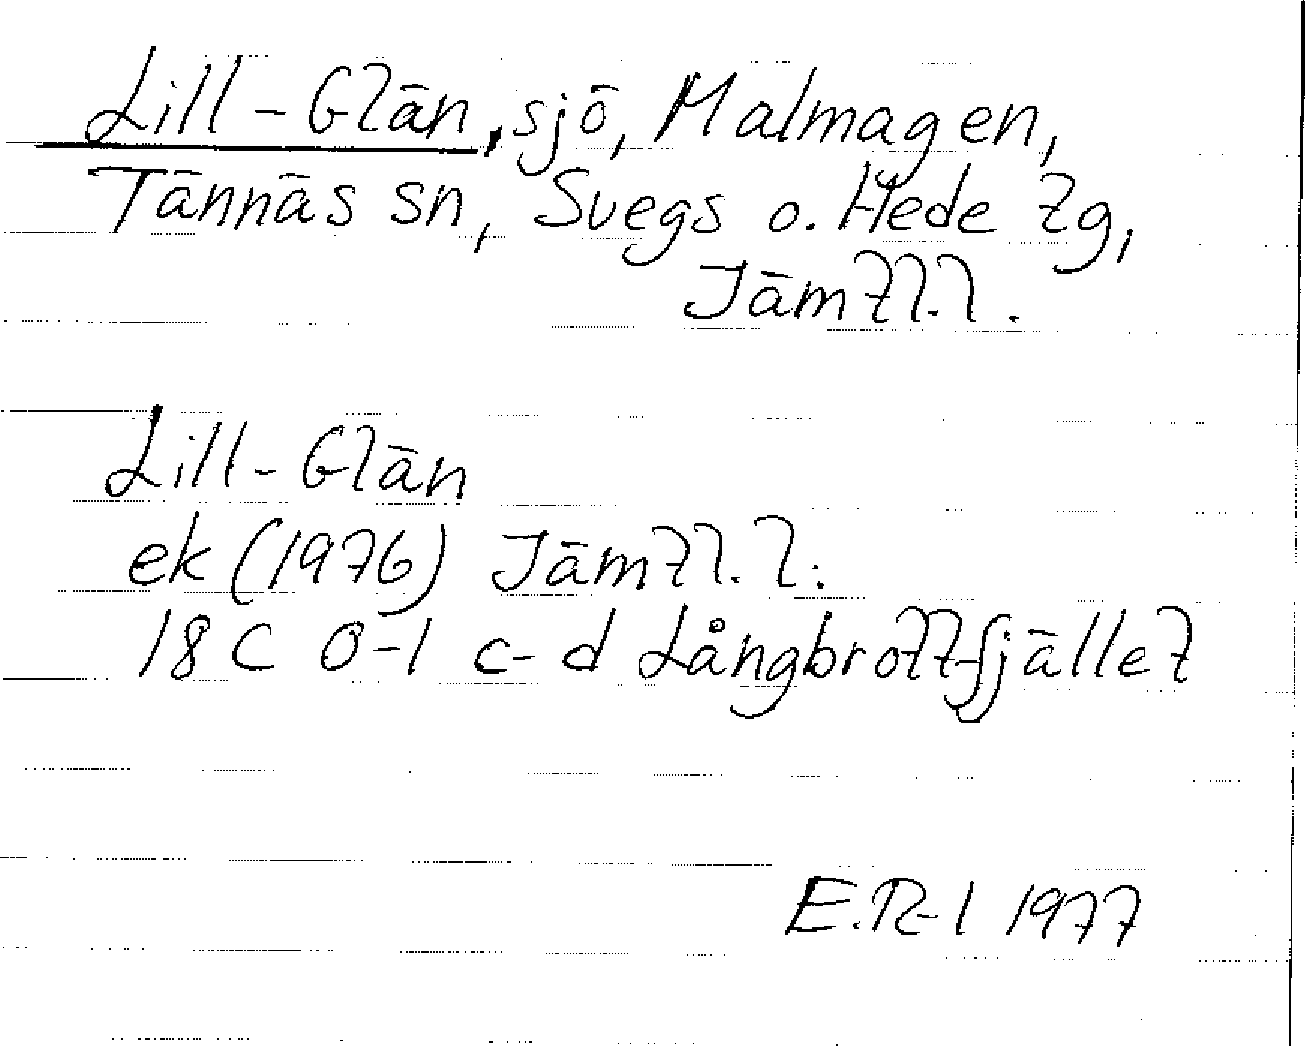 Lill-Glän, sjö, Malmagen,
Tännäs sn, Svegs o. Hede tg,
Jämtl. l.
Lill-Glän
ek (1976) Jämtl. l.:
18C 0-1 c-d Långbrottfjället
E.R-l 1977